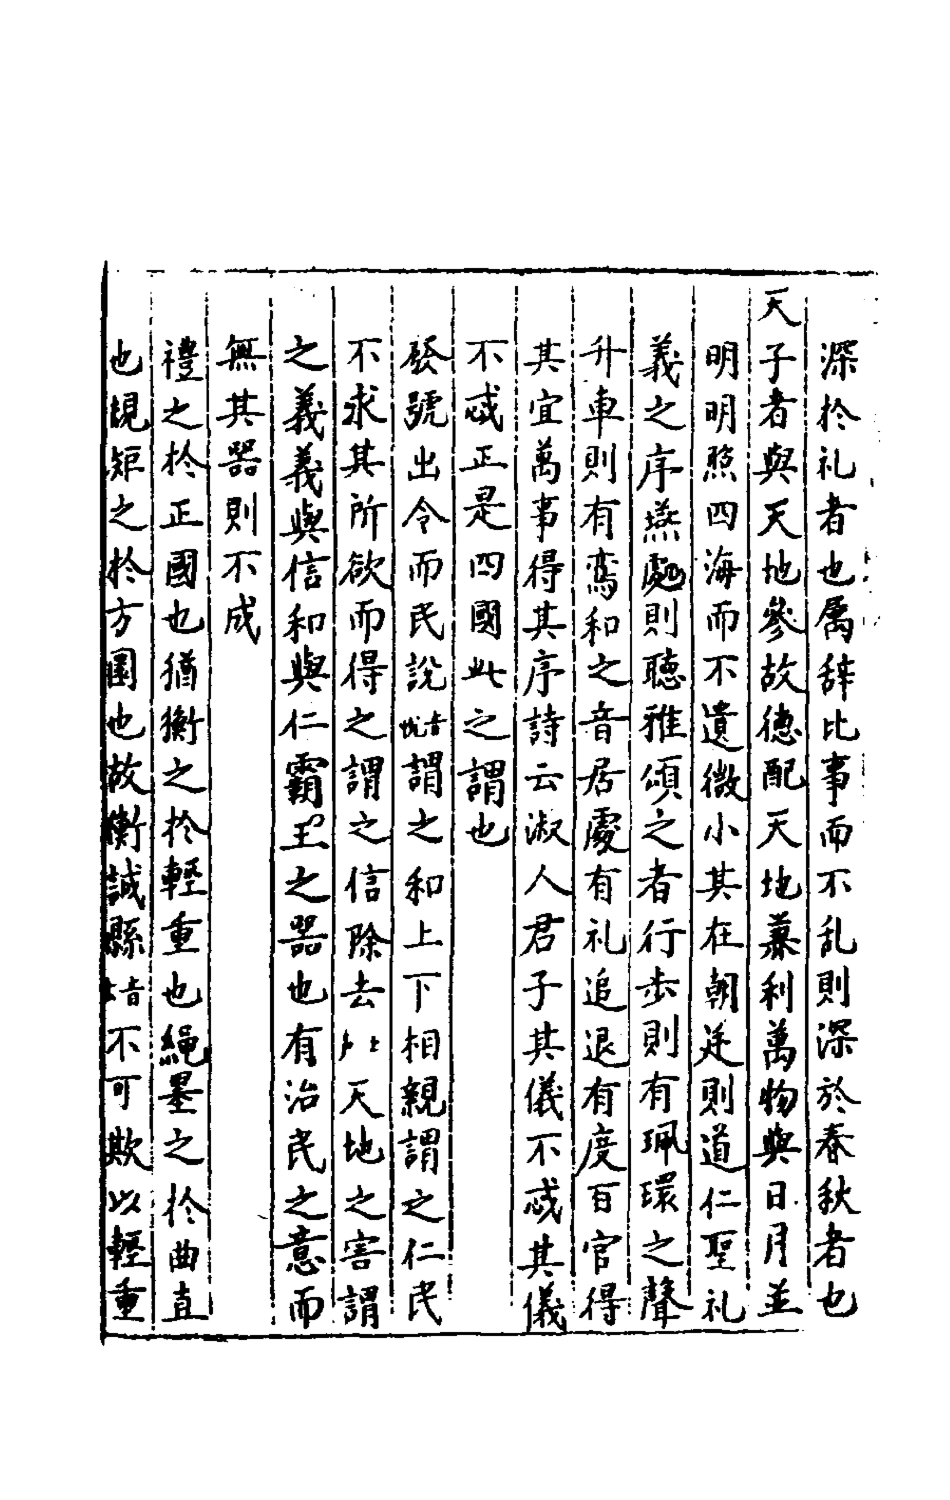 深扵礼者也属辞比事而不乱則深於春秋者也
天子者與天地參故德配天地兼利萬物與日月並
明明照四海而不遺微小其在朝廷則道仁聖礼
義之序燕處則聴雅頌之者行步則有珮環之聲
升車則有鸞和之音居處有礼追退有度百官得
其宜萬事得其序詩云淑人君子其儀不忒其儀
不忒正是四國此之謂也
發號出令而民說音悦謂之和上下相親謂之仁民
不求其所欲而得之謂之信除去天地之害謂
之義義與信和與仁霸王之器也有治民之意而
無其器則不成
禮之扵正國也猶衡之扵輕重也繩墨之扵曲直
也規矩之扵方圜也故衡誠縣音不可欺以輕重